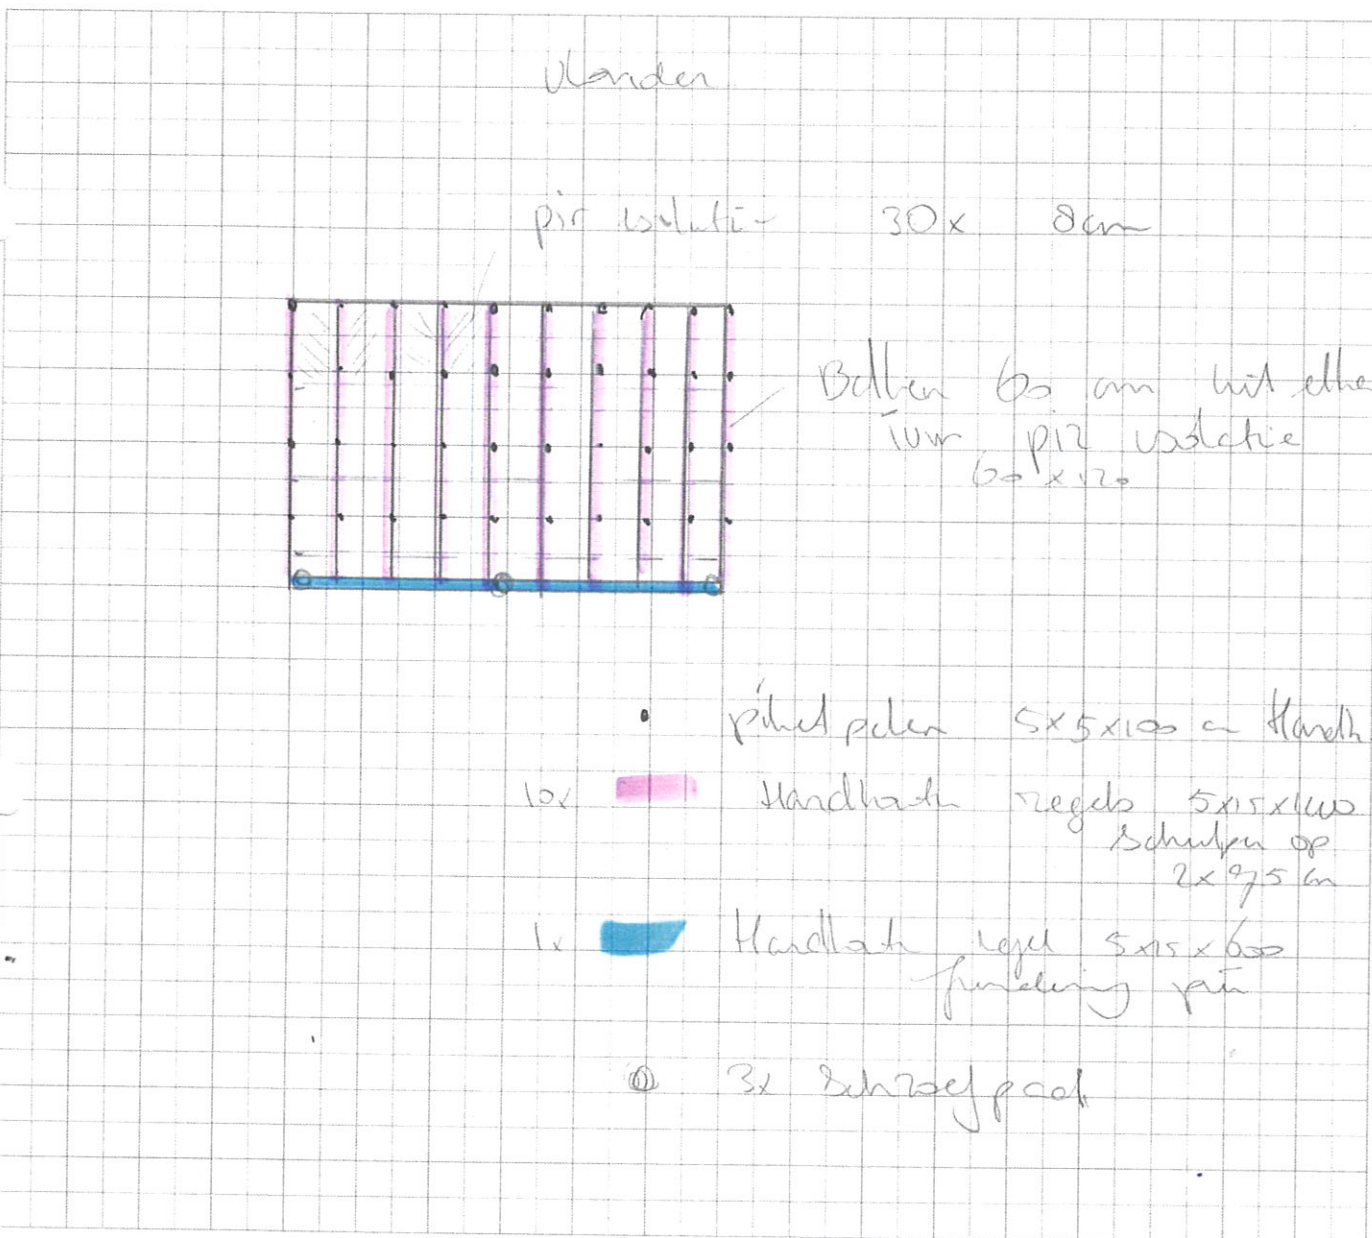 vlonder
pir isolatie 30x 8cm
Balken 60 cm uit elka
ivm pir isolatie
60 x 120
piket palen 5x5x100 cm Hardh
10x Hardhouten regels 5x15x400
Schulpen op
2x 7,5 cm
1x Hardhouten regel 5x15x600
fundering
3x Schroefpaal